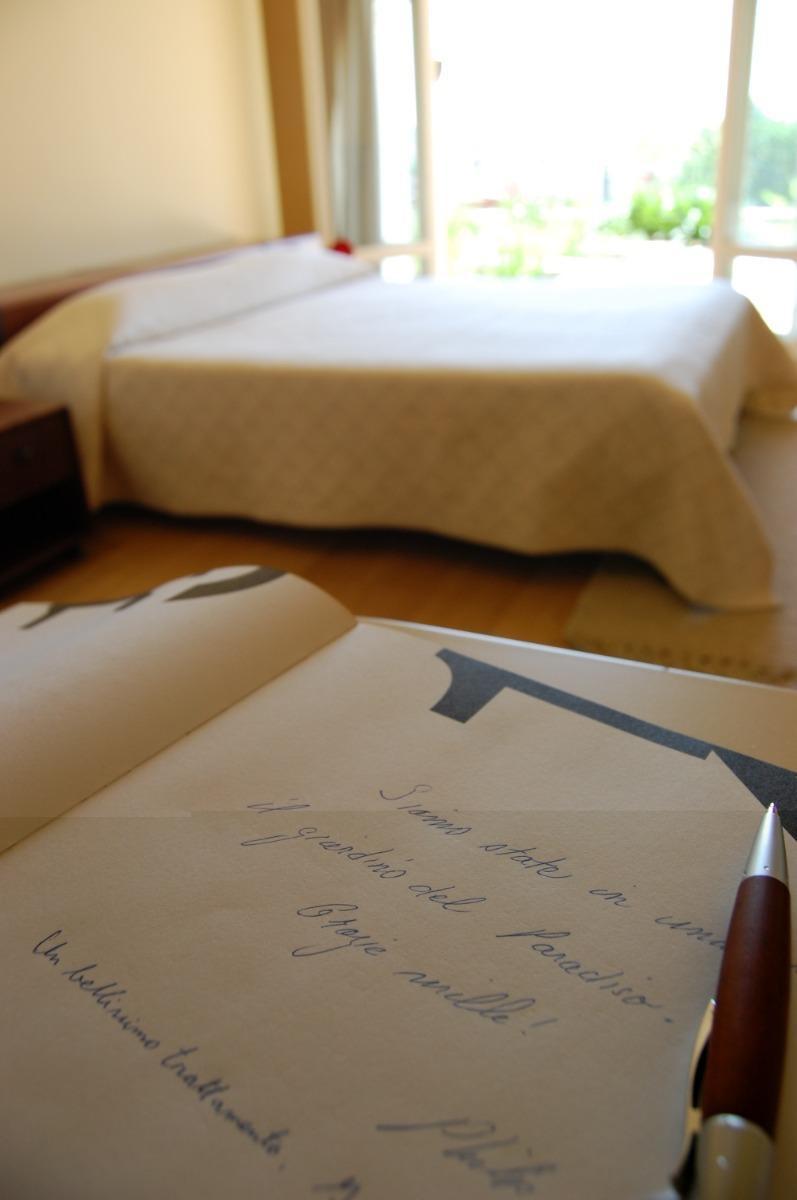 Siamo state in una
il giardino del Paradiso.
Grazie mille!
Un bellissimo trattamento.